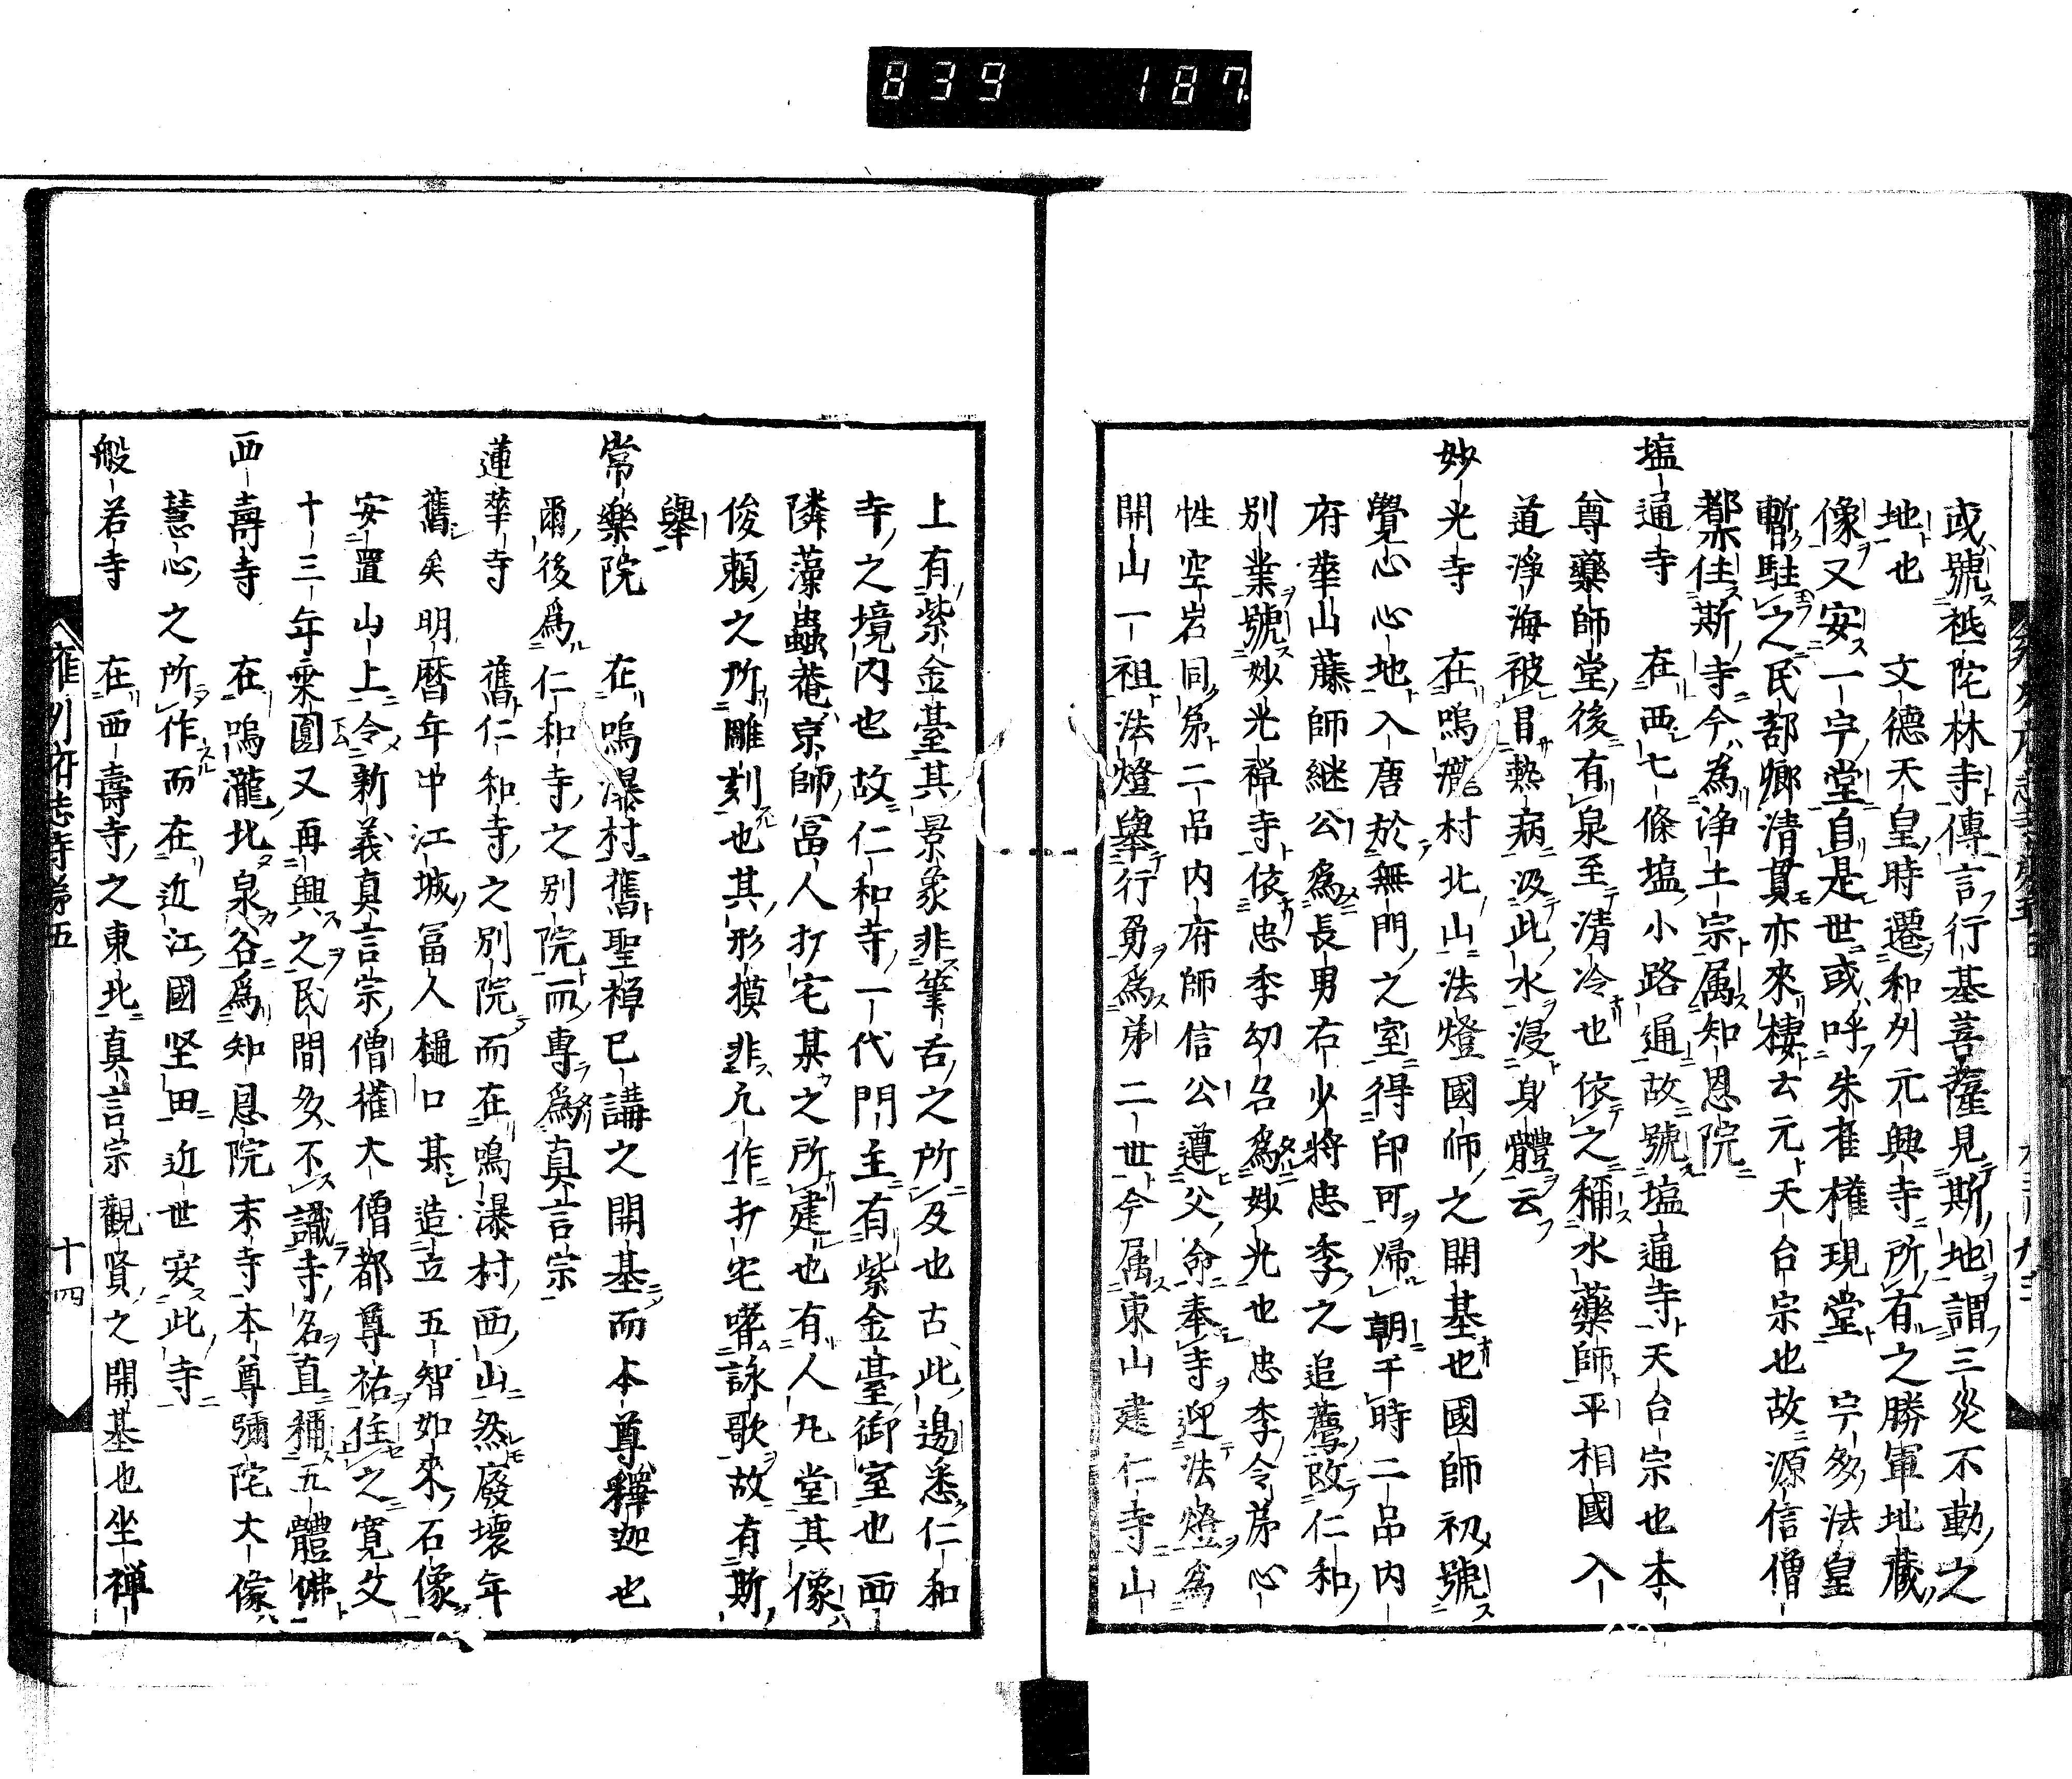 839 187
或號祗陀林寺傳言行基菩薩見斯地謂三災不動之
地也 文德天皇時遷和州元興寺所有之勝軍地藏
像又安一宇堂自是世或呼朱雀權現堂 宇多法皇
暫駐之民部卿清貫亦來棲云元天台宗也故源信僧
都亦住斯寺今為淨土宗属知恩院
塩通寺 在西七條塩小路通故號塩通寺天台宗也本
尊藥師堂後有泉至清冷也依之稱水藥師平相國入
道淨海被冒熱病汲此水浸身體云
妙光寺 在鳴瀧村北山法燈國師之開基也國師初號
覺心心地入唐於無門之室得印可歸朝于時二品内
府華山藤師継公為長男右少將忠季之追薦改仁和
別業號妙光禅寺依忠季幼名為妙光也忠季令弟心
性空岩同第二品内府師信公遵父命奉寺迎法燈為
開山一祖法燈擧行勇為第二世今属東山建仁寺山
上有紫金臺其景象非筆舌之所及也古此邊悉仁和
寺之境内也故仁和寺一代門主有紫金臺御室也西
隣藻蟲菴京師冨人打宅某之所建也有人丸堂其像
俊頼之所雕刻也其形摸非凡作打宅嗜詠歌故有斯
擧
常樂院 在鳴瀑村舊聖禅已講之開基而本尊釋迦也
爾後為仁和寺之別院而專為真言宗
蓮華寺 舊仁和寺之別院而在鳴瀑村西山然廢壞年
舊矣明暦年中江城冨人樋口某造立五智如來石像
安置山上令新義真言宗僧權大僧都尊祐住之寛文
十三年乗圓又再興之民間多不識寺名直稱五體佛
西壽寺 在鳴瀧北泉谷為知恩院末寺本尊彌陀大像
慧心之所作而在近江國堅田近世安此寺
般若寺 在西壽寺之東北真言宗觀賢之開基也坐禅
雍州府志寺第五 十四